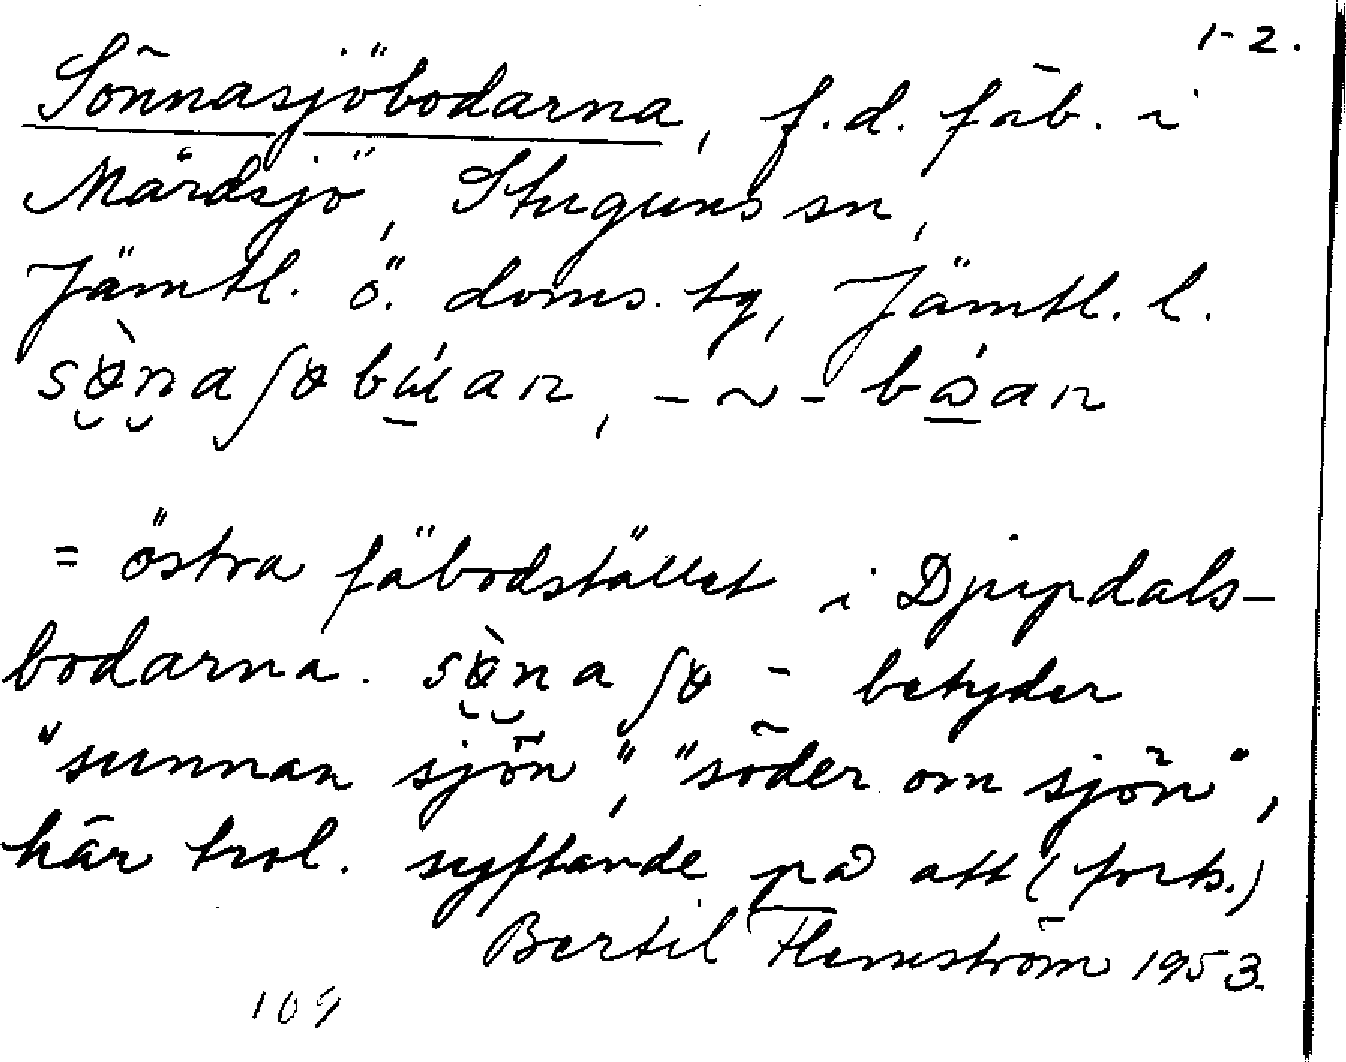 1-2.
Sönnasjöbodarna, f.d. fäb. i
Mårdsjö, Stuguns sn,
Jämtl. ö. doms. tg, Jämtl. l.
= östra fäbodstället i Djupdals-
bodarna. - betyder
"sunnan sjön", "söder om sjön",
här trol. syftande på att (forts.)
Bertil Flemström 1953.
109